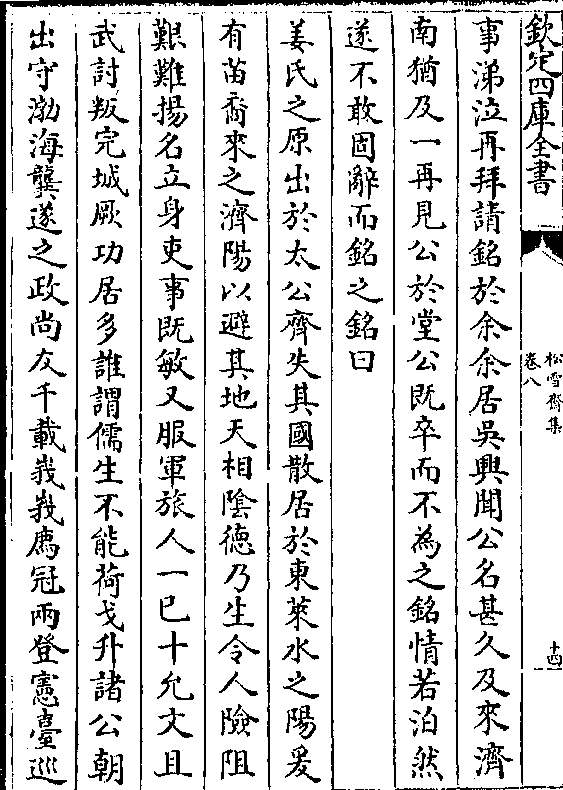 欽定四庫全書
松雪齋集
卷八
十四
事涕泣再拜請銘於余余居吳興聞公名甚久及來濟
南猶及一再見公於堂公既卒而不為之銘情若泊然
遂不敢固辭而銘之銘曰
姜氏之原出於太公齊失其國散居於東萊水之陽爰
有苖裔來之濟陽以避其地天相隂德乃生令人險阻
艱難揚名立身吏事既敏又服軍旅人一已十允文且
武討叛完城厥功居多誰謂儒生不能荷戈升諸公朝
出守渤海龔遂之政尚友千載峩峩廌冠兩登憲臺巡